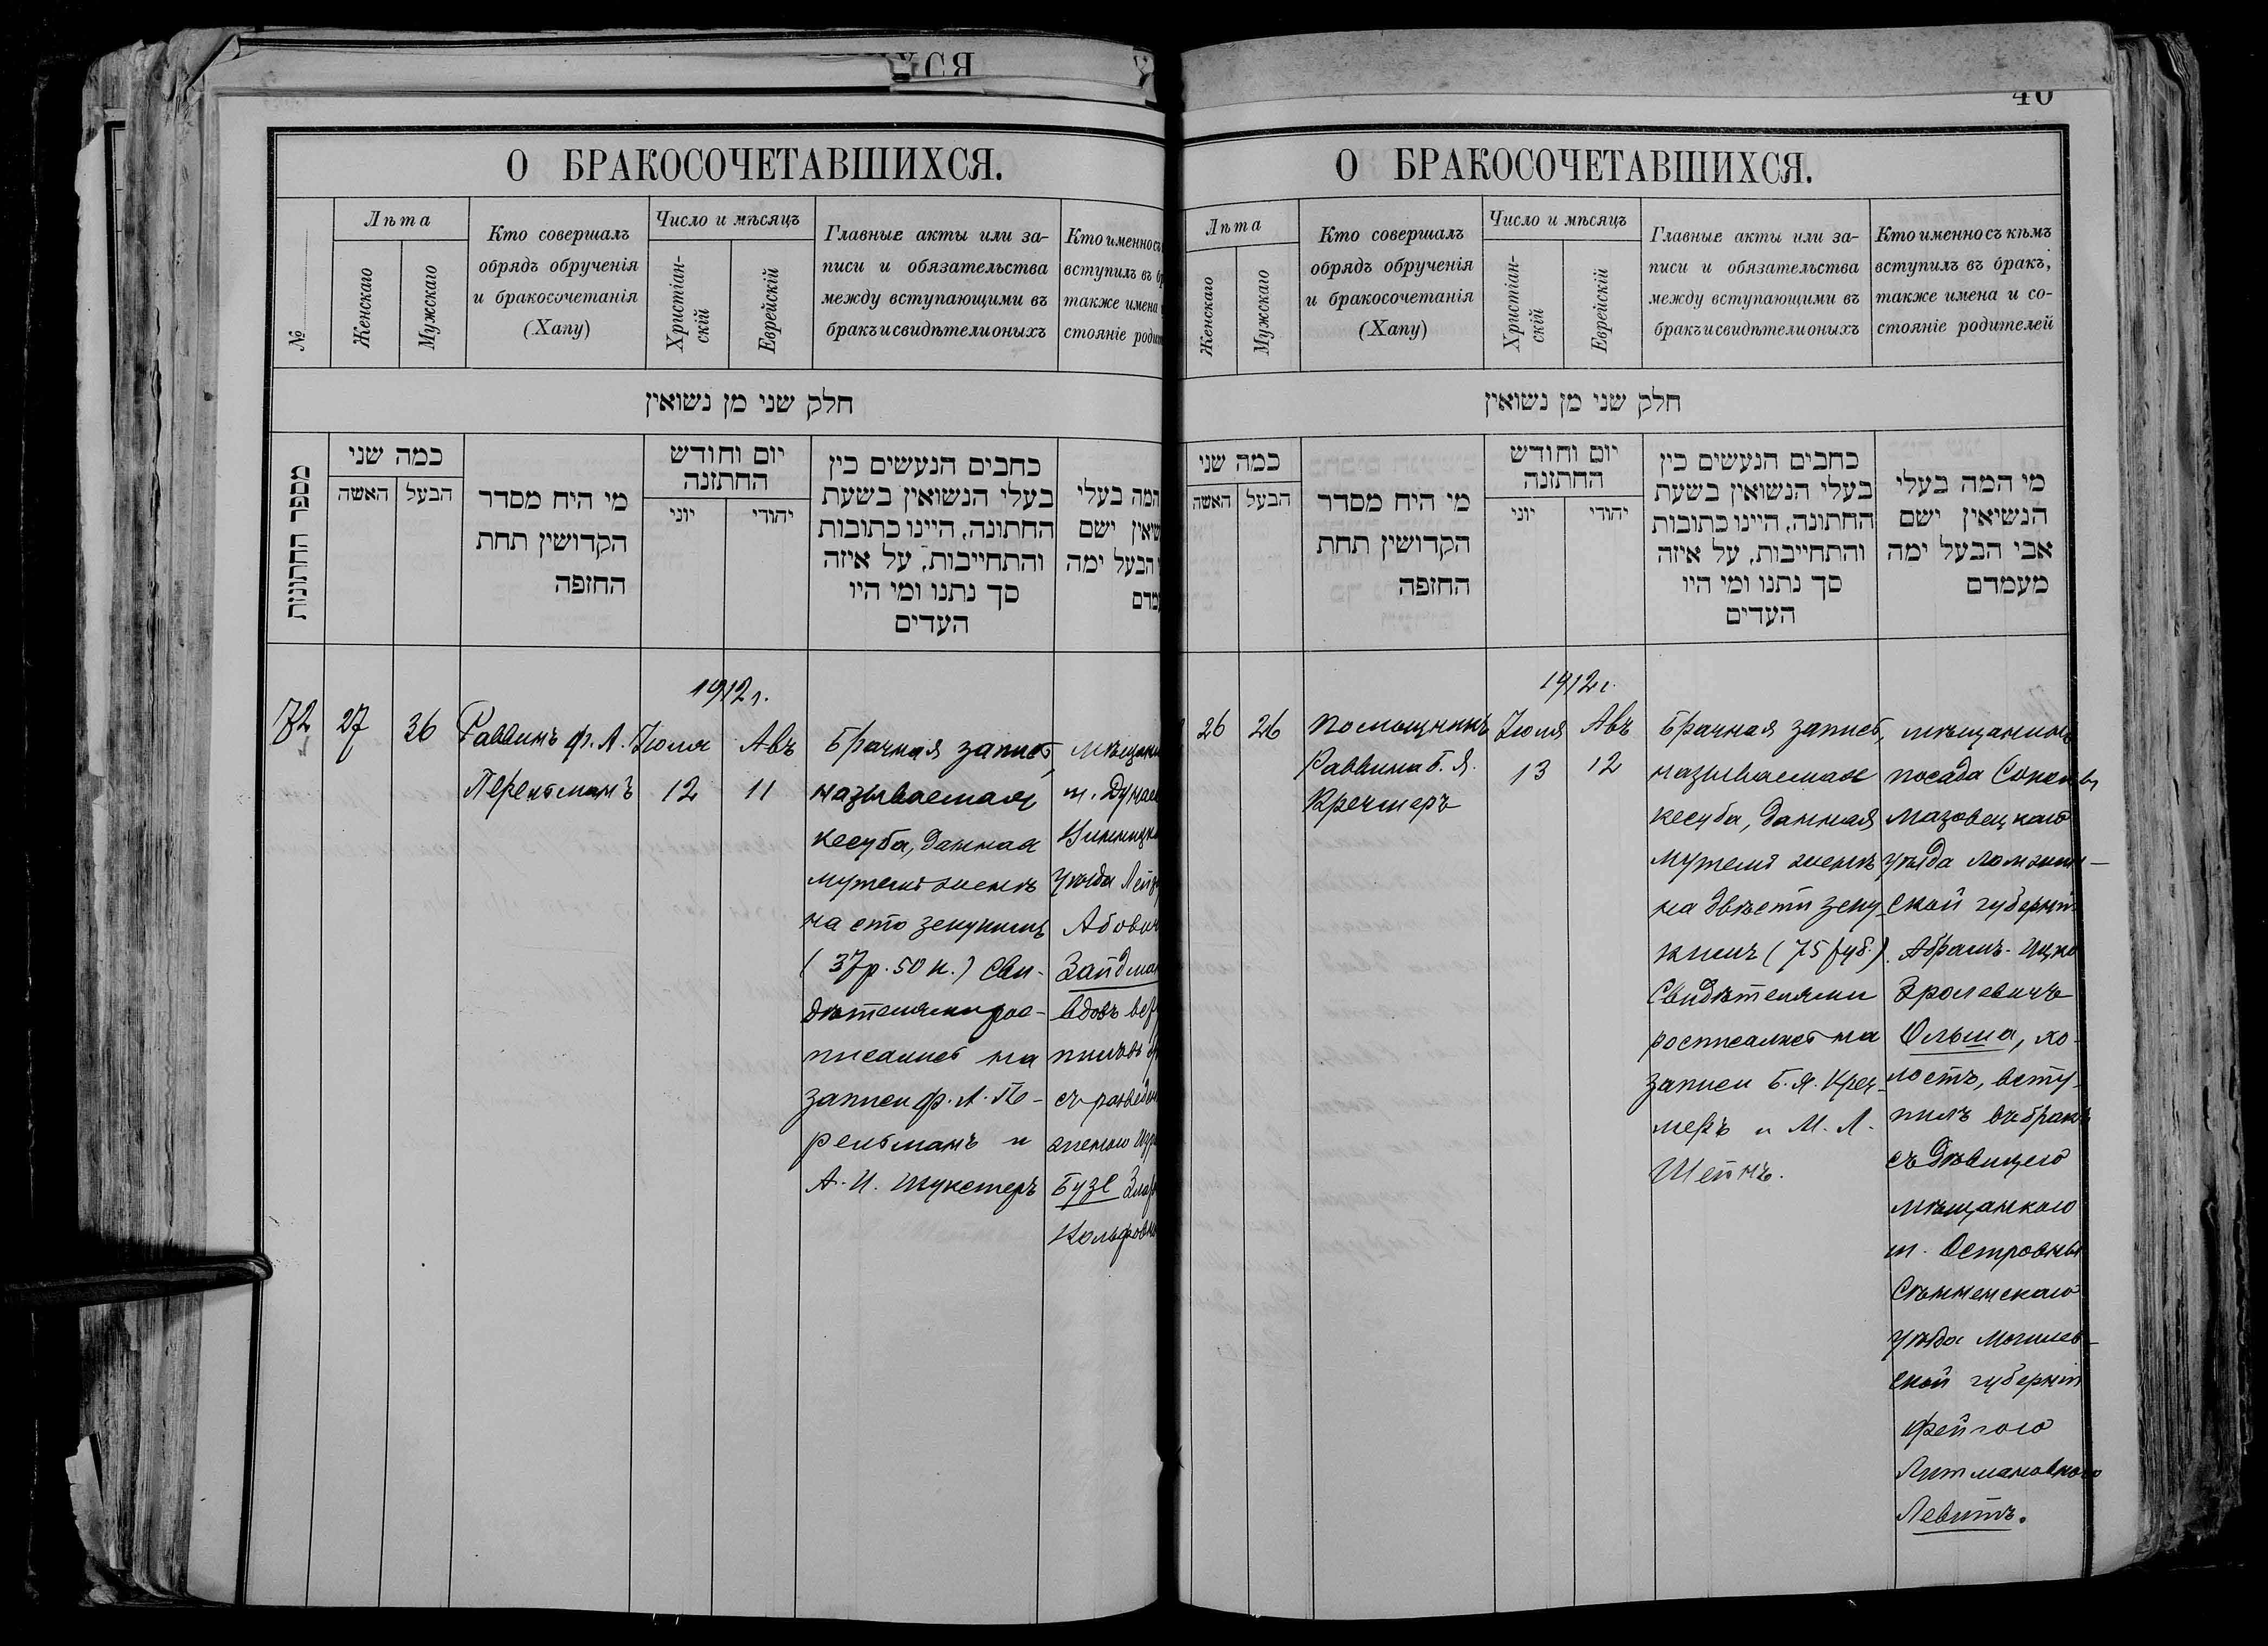 40
О БРАКОСОЧЕТАВШИХСЯ.
№
Лѣта
Женскаго
Мужскаго
Кто совершалъ
обрядъ обрученія
и бракосочетанія
(Хапу)
Число и мѣсяцъ
Христіан-
скій
Еврейскій
Главные акты или за-
писи и обязательства
между вступающими въ
бракъ и свидѣтели оныхъ
Кто именно съ
вступилъ въ
также имена
стояніе
חלק שני מן נשואין
מספר החתונות
כמה שני
האשה
הבעל
מי היח מסדר
הקדושין תחת
החזפה
יום וחודש
החתזנה
יוני
יהודי
כחבים הנעשים כין
בעלי הנשואין בשעת
החתונה, היינו כתובות
והתחייבות, על איזה
סך נתנו ומי היו
העדים
המה בעלי
ישם
הבעל ימה
1912 г.
72
27
36
Раввинъ Ф. Л.
Перельманъ
Іюля
12
Авъ
11
Брачная запись,
называемая
кесуба, данная
мужемъ женѣ
на сто зекукимъ
(37 р. 50 к.) Сви-
дѣтелями рос-
писались на
записи Ф. Л. Пе-
рельманъ и
А. И. Шукстеръ
м. Дунае
Уѣзда
Або
Зайдма
вдовъ
съ разведен
женою
Бузе
О БРАКОСОЧЕТАВШИХСЯ.
Лѣта
Женскаго
Мужскаго
Кто совершалъ
обрядъ обрученія
и бракосочетанія
(Хапу)
Число и мѣсяцъ
Христіан-
скій
Еврейскій
Главные акты или за-
писи и обязательства
между вступающими въ
бракъ и свидѣтели оныхъ
Кто именно съ кѣмъ
вступилъ въ бракъ,
также имена и со-
стояніе родителей
חלק שני מן נשואין
כמה שני
האשה
הבעל
מי היח מסדר
הקדושין תחת
החזפה
יום וחודש
החתזנה
יוני
יהודי
כחבים הנעשים כין
בעלי הנשואין בשעת
החתונה, היינו כתובות
והתחייבות, על איזה
סך נתנו ומי היו
העדים
מי המה בעלי
הנשיאין ישם
אבי הבעל ימה
מעמדם
1912 г.
26
26
Помощникъ
Раввина Б. Я.
Кречмеръ
Іюля
13
Авъ
12
Брачная запись,
называемая
кесуба, данная
мужемъ женѣ
на двѣсти зеку-
кимъ (75 руб.).
Свидѣтелями
росписались на
записи Б. Я. Креч-
меръ и М. Л.
Шейнъ.
мѣщанинъ
посада Соколы
Мазовецкаго
уѣзда Ломжин-
ской губерніи
Абрамъ-Ицко
Сролевичъ
Ольша, хо-
лостъ, всту-
пилъ въ бракъ
съ дѣвицею
мѣщанкою
м. Островны
Сѣнненскаго
уѣзда Могилев-
ской губерніи
Фейгою
Литмановною
Левитъ.